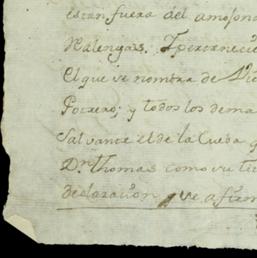 estan fuera del amojona
Realengas. Y pertenecie
El que se nombra de Vie
Potrero; y todos los dema
Salvante el de la Cueba q
Dn. Thomas como su tit
declaracion que afirm